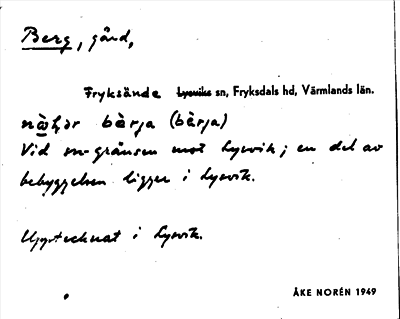 Berg, gård,
Fryksände Lysviks sn, Fryksdals hd, Värmlands län.
bærja (bærja)
Vid sn-gränsen mot Lysvik; en del av
bebyggelsen ligger i Lysvik.
Upptecknat i Lysvik.
ÅKE NORÉN 1949